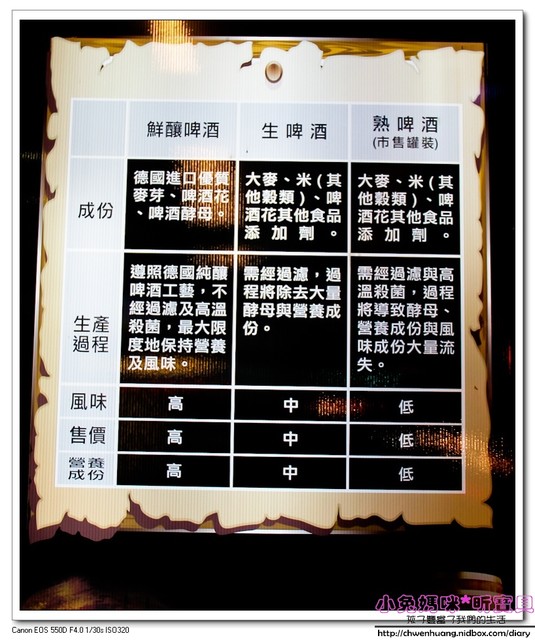 鮮釀啤酒
生啤酒
熟啤酒
(市售罐裝)
成份
德國進口優質
麥芽、啤酒花
、啤酒酵母。
大麥、米(其
他穀類)、啤
酒花其他食品
添加劑。
大麥、米(其
他穀類)、啤
酒花其他食品
添加劑。
生產
過程
遵照德國純釀
啤酒工藝,不
經過濾及高溫
殺菌,最大限
度地保持營養
及風味。
需經過濾,過
程將除去大量
酵母與營養成
份。
需經過濾與高
溫殺菌,過程
將導致酵母、
營養成份與風
味成份大量流
失。
風味
高
中
低
售價
高
中
低
營養
成份
高
中
低
小兔媽咪*昕寶貝
孩子豐富了我們的生活
Canon EOS 550D F4.0 1/30s ISO320
http://chwenhuang.nidbox.com/diary